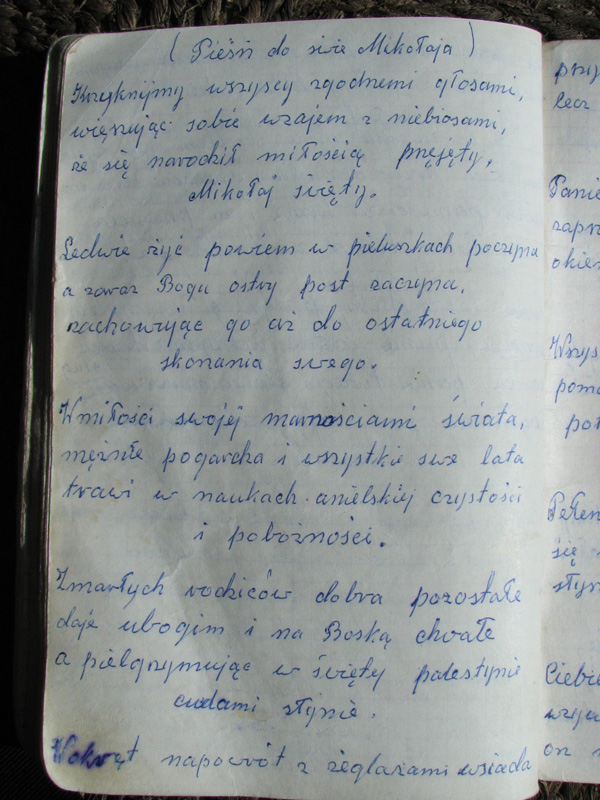 ( Pieśń do śwe Mikołaja )
Krzyknijmy wszyscy zgodnemi głosami,
więszując sobie wzajem z niebiosami,
że się narodził miłością pręjęty,
Mikołaj święty.
Ledwie żyć powiem w pieluszkach poczyna
a zaraz Bogu ostry post zaczyna,
zachowując go aż do ostatniego
skonania swego.
W miłości swojej marnościami świata,
mężnie pogardza i wszystkie swe lata
trawi w naukach anielskiej czystości
i pobożności.
Zmarłych rodziców dobra pozostałe
daje ubogim i na Boską chwałe
a pielgrzymując w święty palestynie
cudami słynie.
W okręt napowrót z żeglarzami wsiada
przy
lecz
Panie
okien
Wszys
pom
pot
Pełen
się
słyn
Ciebie
on